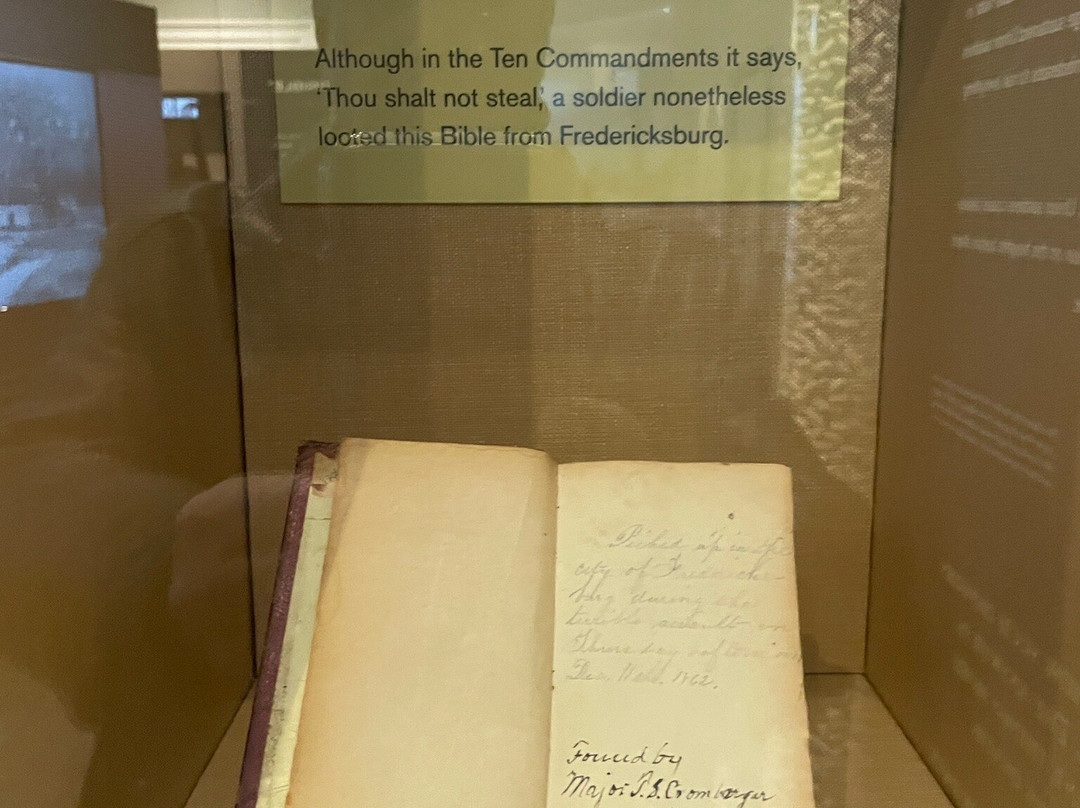 Although in the Ten Commandments it says,
‘Thou shalt not steal,’ a soldier nonetheless
looted this Bible from Fredericksburg.
Picked up in the
city of Fredericks
burg during the
terrible assault on
Thursday afternoon
Dec. 11th. 1862.
Found by
Major J. S. Cromberger